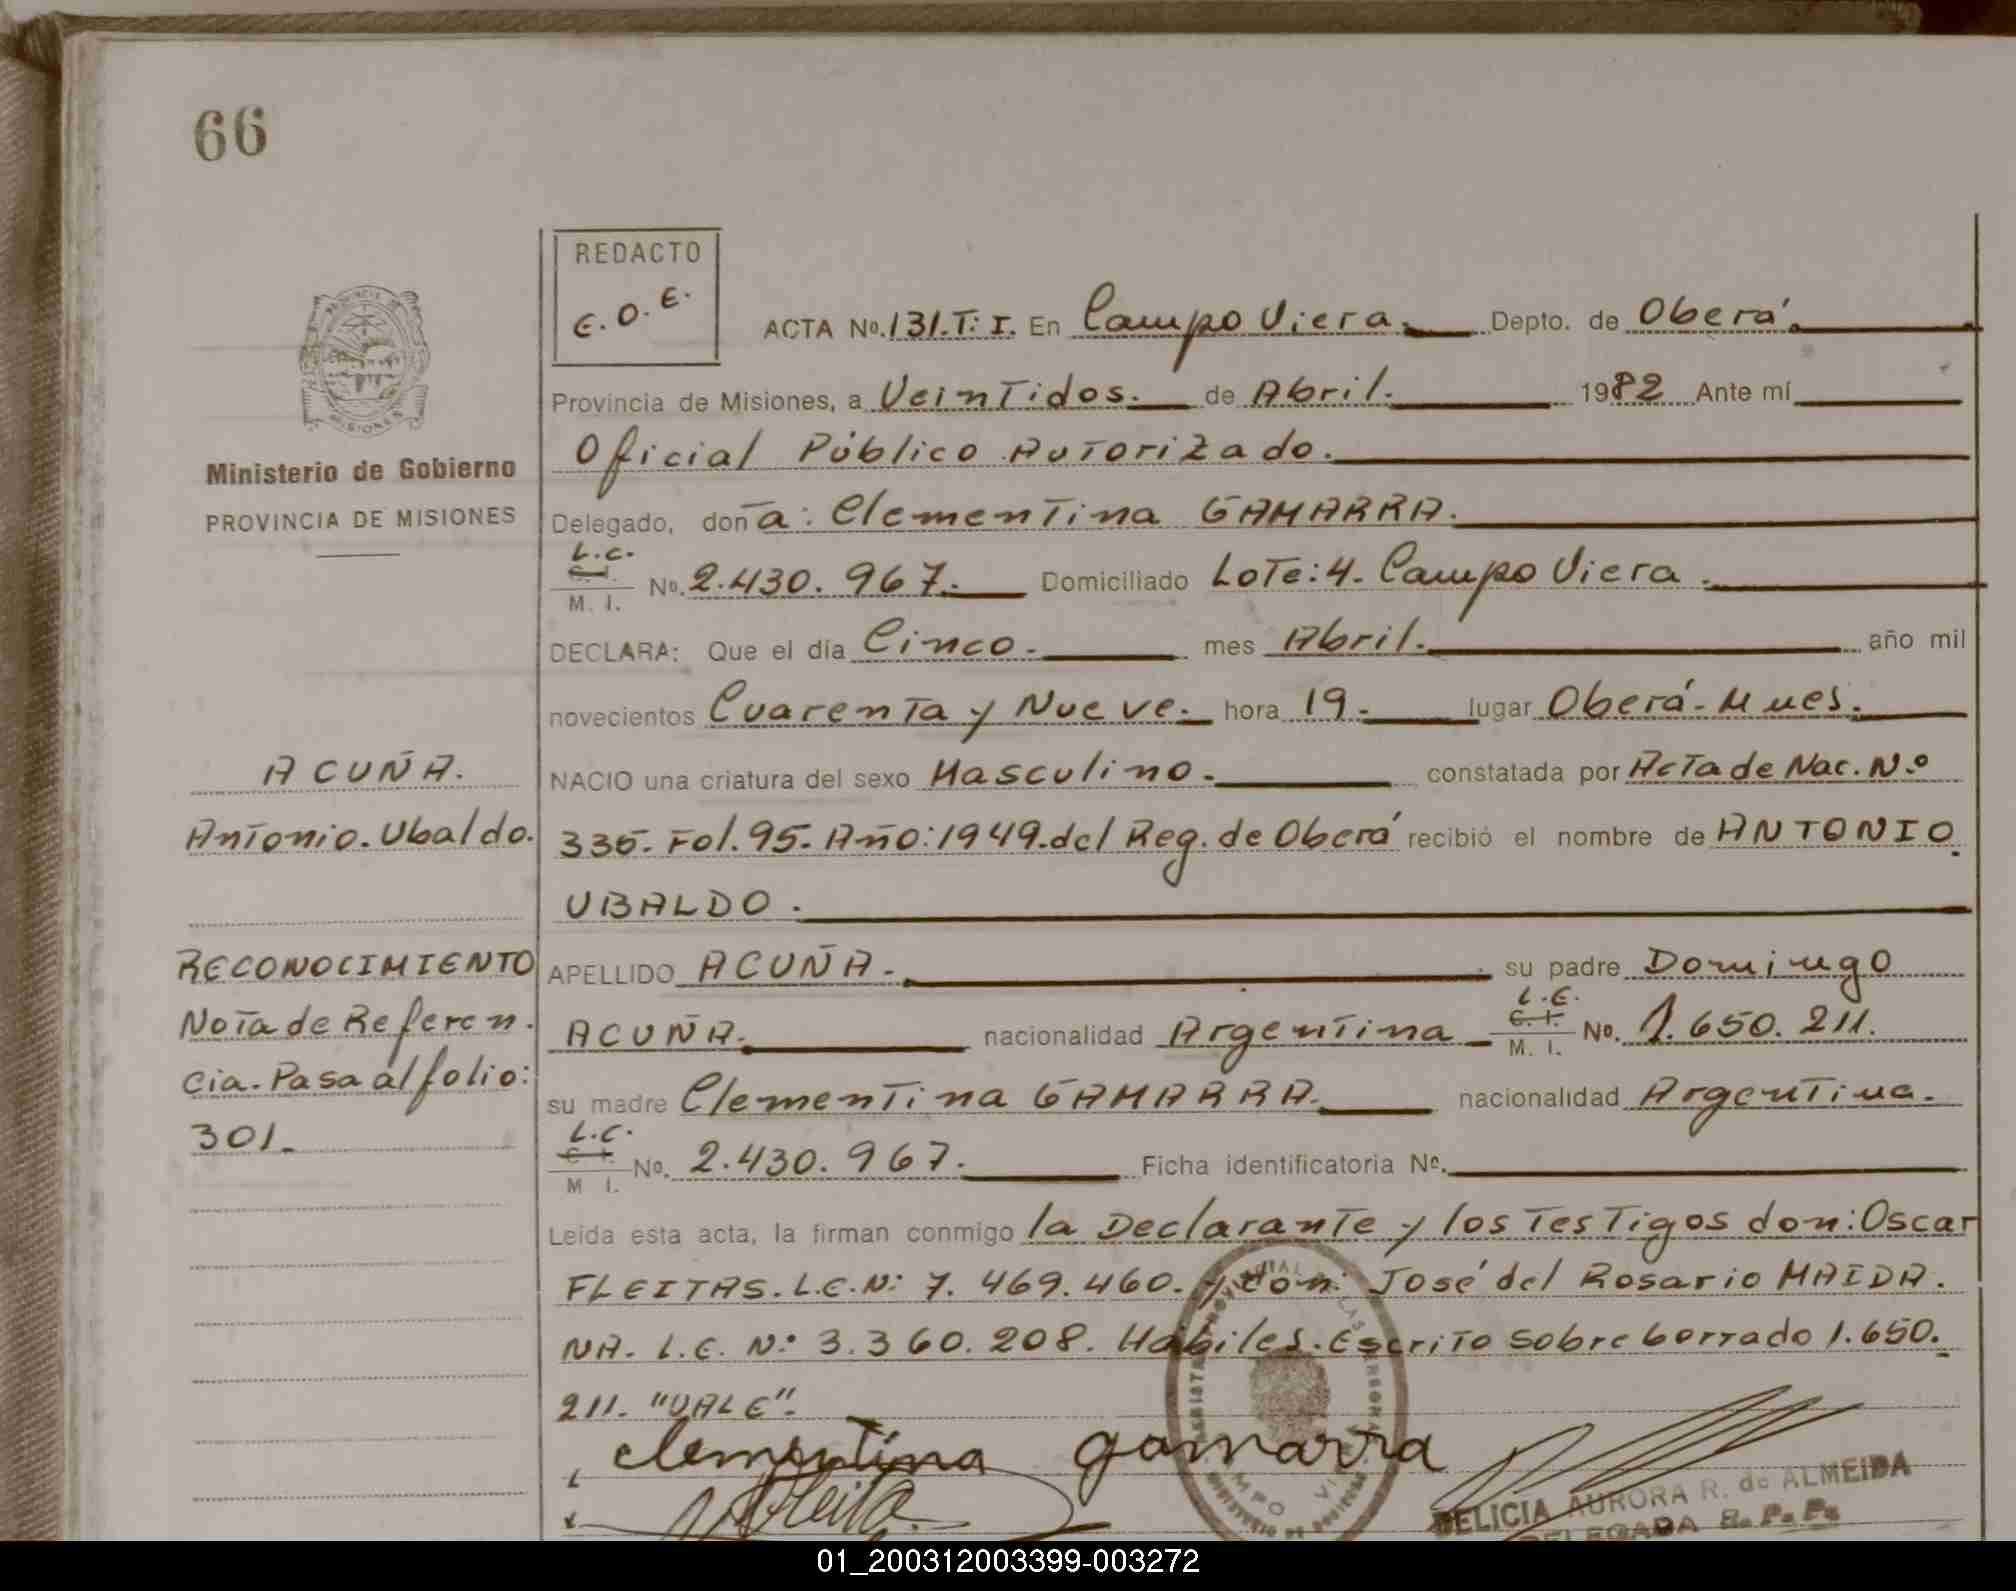 66
REDACTO
E.O.E.
ACTA No. 131.T: I. En Campo Viera. Depto. de Oberá.
Provincia de Misiones, a Veintidos. de Abril. 1982 Ante mí
Oficial Público Autorizado.
Ministerio de Gobierno
PROVINCIA DE MISIONES
Delegado, don a: Clementina GAMARRA.
L.C.
C. I.
M. I.
No. 2.430.967. Domiciliado Lote: 4. Campo Viera.
DECLARA: Que el día Cinco. mes Abril. año mil
novecientos Cuarenta y Nueve. hora 19. lugar Oberá-Mnes.
ACUÑA.
NACIO una criatura del sexo Masculino. constatada por Acta de Nac. Nº
Antonio. Ubaldo.
335. Fol. 95. Año: 1949. del Reg. de Oberá recibió el nombre de ANTONIO
UBALDO.
RECONOCIMIENTO
Nota de Referen.
cia. Pasa al folio:
301.
APELLIDO ACUÑA. su padre Domingo
L.E.
C. I.
M. I.
ACUÑA. nacionalidad Argentina No. 1.650.211.
su madre Clementina GAMARRA. nacionalidad Argentina.
L.C.
C I.
M I.
No. 2.430.967. Ficha identificatoria No.
Leída esta acta, la firman conmigo la Declarante y los Testigos don: Oscar
FLEITAS. L.E.N: 7.469.460. y don: José del Rosario MAIDA.
NA. L.E. N: 3.360.208. Hábiles. Escrito sobre borrado 1.650.
211. "VALE".
Clementina gamarra
DELICIA AURORA R. de ALMEIDA
DELEGADA R. P. P.
01_200312003399-003272